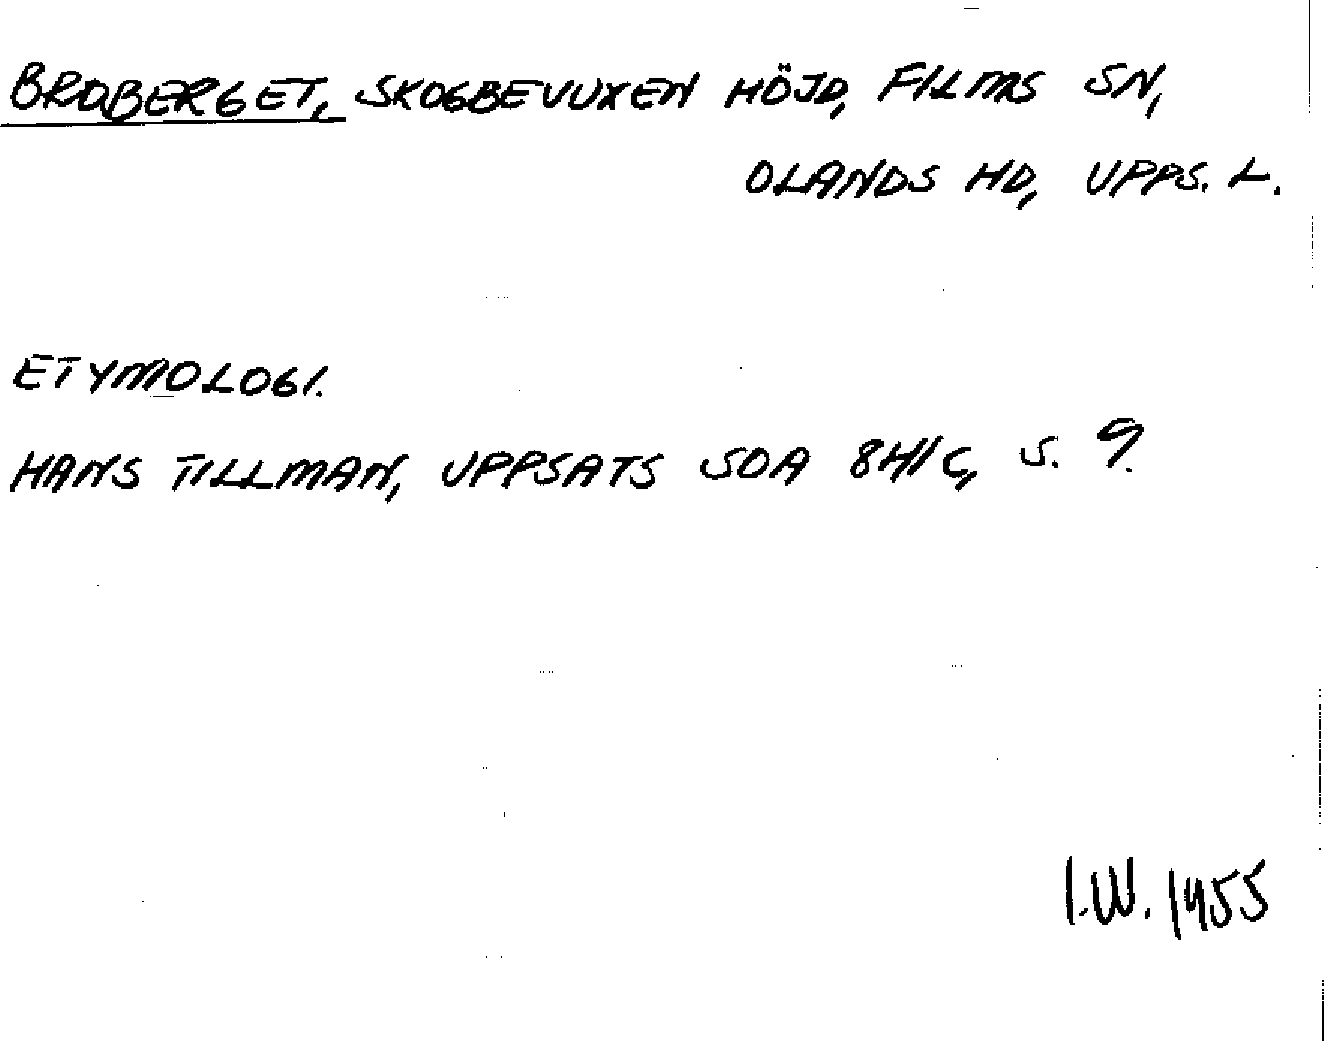 BROBERGET, SKOGBEVUXEN HÖJD, FILMS SN,
OLANDS HD, UPPS. L.
ETYMOLOGI.
HANS TILLMAN, UPPSATS SOA 84/C, S. 9.
I.W. 1955